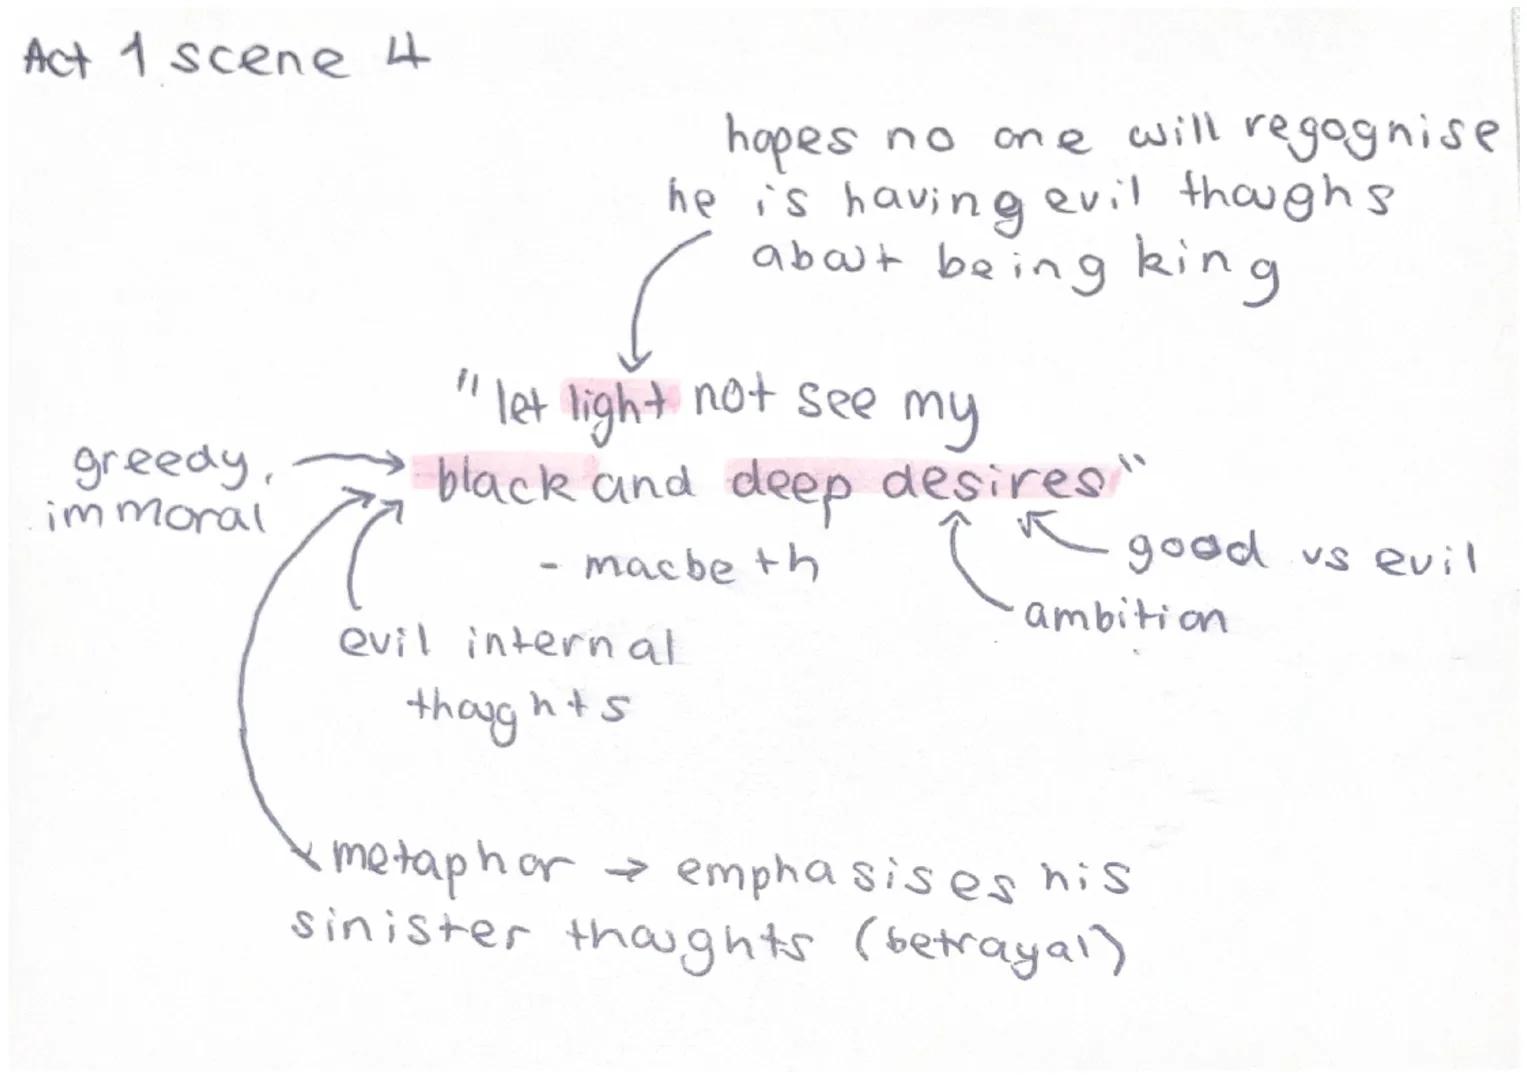 Act 1 scene 4
hopes no one will regognise
he is having evil thoughs
about being king
"let light not see my
black and deep desires"
- macbeth
greedy,
immoral
good vs evil
ambition
evil internal
thoughts
metaphor → emphasises his
sinister thoughts (betrayal)